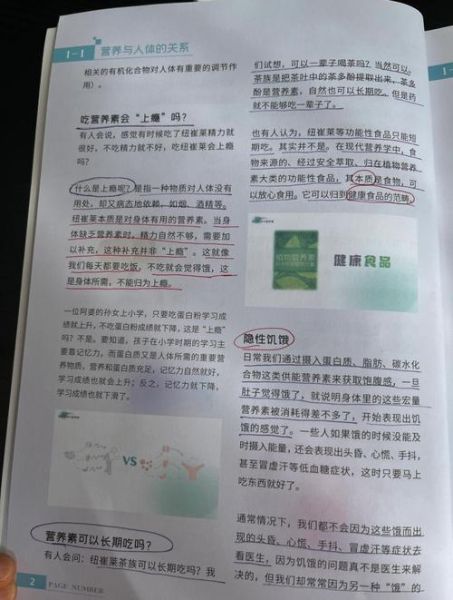 1-1 营养与人体的关系
相关的有机化合物对人体有重要的调节作
用）。
吃营养素会“上瘾”吗？
有人会说，感觉有时候吃了纽崔莱精力就
很好，不吃精力就不好，吃纽崔莱会上瘾
吗？
什么是上瘾呢？是指一种物质对人体没有
用处，却又病态地依赖，如烟、酒精等。
纽崔莱本质是对身体有用的营养素。当身
体缺乏营养素时，精力自然不够，需要加
以补充，这种补充并非“上瘾”。这就像
我们每天都要吃饭，不吃就会觉得饿，这
是身体所需，不能归为上瘾。
一位阿婆的孙女上小学，只要吃蛋白粉学习成
绩就上升，不吃蛋白粉成绩就下降，这是“上瘾”
吗？不是。要知道，孩子在小学时期的学习主
要靠记忆力，而蛋白质又是人体所需的重要营
养物质，营养和蛋白质充足，记忆力自然就好，
学习成绩也就会上升；反之，记忆力就下降，
学习成绩也就下滑了。
VS
营养素可以长期吃吗？
有人会问：纽崔莱茶族可以长期吃吗？我
2 PAGE NUMBER
们试想，可以一辈子喝茶吗？当然可以。
茶族是把茶叶中的茶多酚提取出来，茶多
酚是营养素，自然也可以长期吃。但是药
就不能够吃一辈子了。
也有人认为，纽崔莱等功能性食品只能短
期吃。其实并不是。在现代营养学中，食
物来源的、经过安全萃取、归在植物营养
素大类的功能性食品，其本质是食物，可
以放心食用。它可以归到健康食品的范畴。
植物营养素
健康食品
隐性饥饿
日常我们通过摄入蛋白质、脂肪、碳水化
合物这类供能营养素来获取饱腹感，一旦
肚子觉得饿了，就说明身体里的这些宏量
营养素被消耗得差不多了，开始表现出饥
饿的感觉了。一些人如果饿的时候没能及
时摄入能量，还会表现出头昏、心慌、手抖，
甚至冒虚汗等低血糖症状，这时只要马上
吃东西就好了。
通常情况下，我们都不会因为这些饿而出
现的头昏、心慌、手抖、冒虚汗等症状去
看医生，因为饥饿的问题真不是医生来解
决的，但我们却常常因为另一种“饿”的
1-1